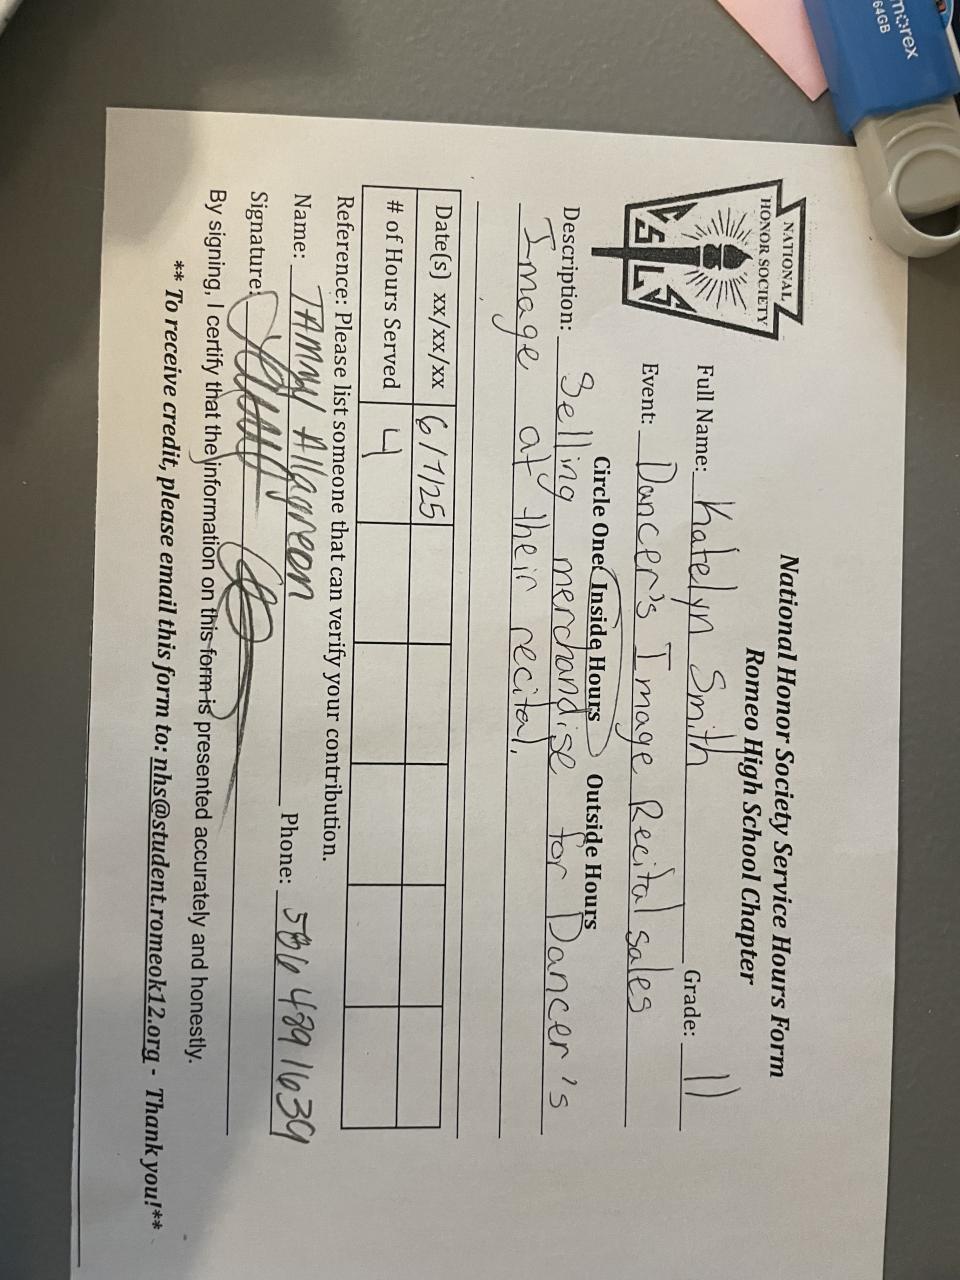 National Honor Society Service Hours Form
Romeo High School Chapter
NATIONAL
HONOR SOCIETY
C S L S
Full Name: Katelyn Smith Grade: 11
Event: Dancer's Image Recital sales
Circle One: Inside Hours Outside Hours
Description: Selling merchandise for Dancer's
Image at their recital.
Date(s) xx/xx/xx 6/7/25
# of Hours Served 4
Reference: Please list someone that can verify your contribution.
Name: TAmmy Allgreen Phone: 586 489 1639
Signature:
By signing, I certify that the information on this form is presented accurately and honestly.
** To receive credit, please email this form to: nhs@student.romeok12.org - Thank you!**
morex
64GB